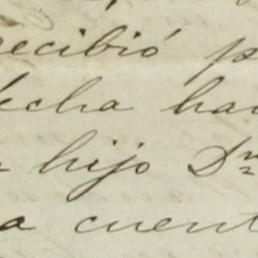 recibió p
fecha ha
hijo Dn
a cuent